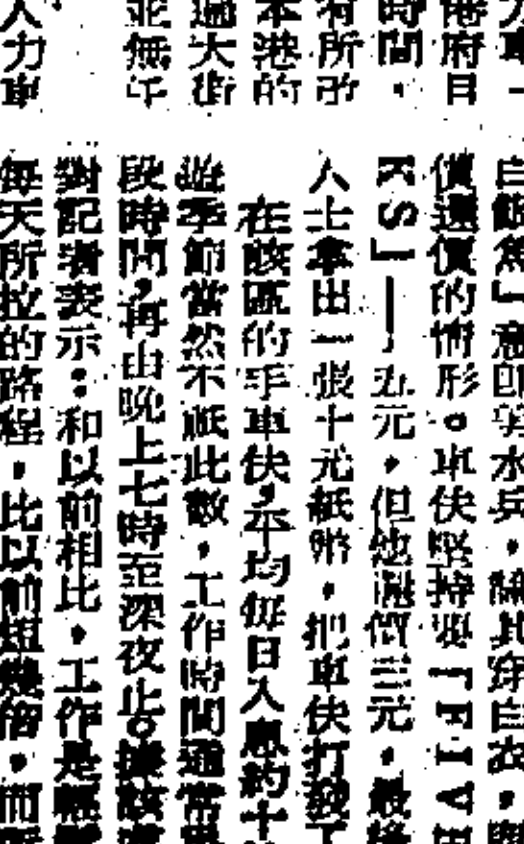 力車一
港府目
時間，
有所改
本港的
通大街
並無午
人力車
白飯魚」意即美水兵，其穿白衣，
價還價的情形。車伕堅持要「FIVE
KS」——五元，但他還價三元，最後
人士拿出一張十元紙幣，把車伕打發了
在該區的手車伕，平均每日入息約十
遊季節當然不祇此數，工作時間通常
段時間，再由晚上七時至深夜止。據該
對記者表示：和以前相比，工作是輕
每天所拉的路程，比以前短幾倍，而所